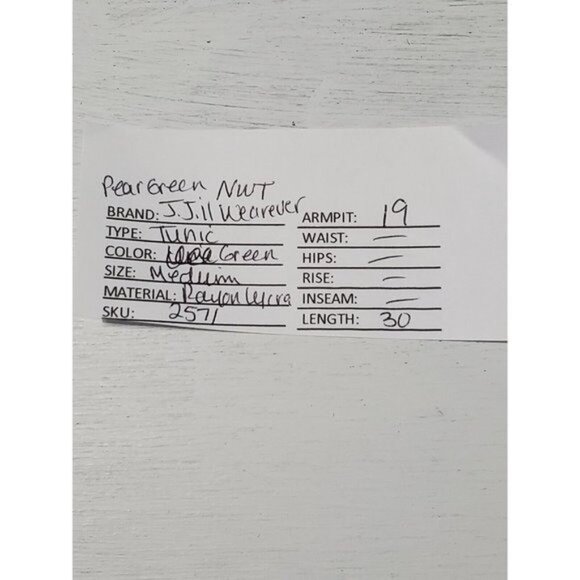 Pear Green NWT
BRAND: J.Jill Wearever
TYPE: Tunic
COLOR: Green
SIZE: Medium
MATERIAL: Rayon Lycra
SKU: 2571
ARMPIT: 19
WAIST: —
HIPS: —
RISE: —
INSEAM: —
LENGTH: 30